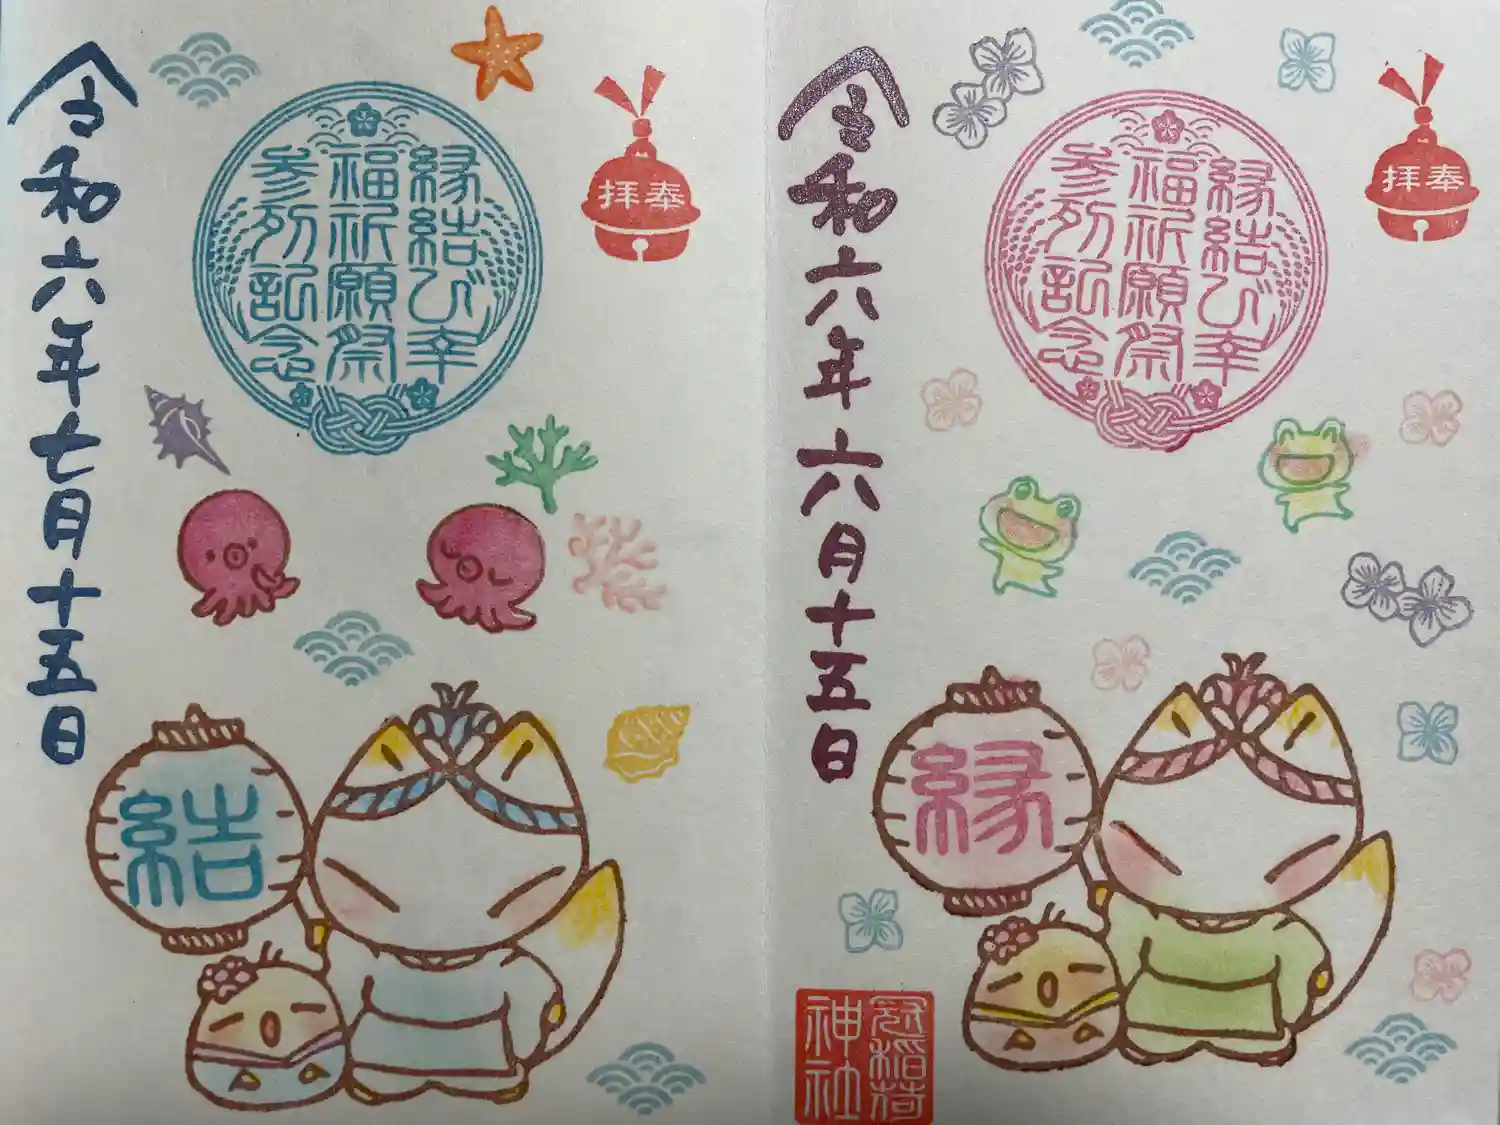 奉拝
縁結び幸
福祈願祭
参列記念
令和六年六月十五日
縁
冠稲荷
神社
奉拝
縁結び幸
福祈願祭
参列記念
令和六年七月十五日
結